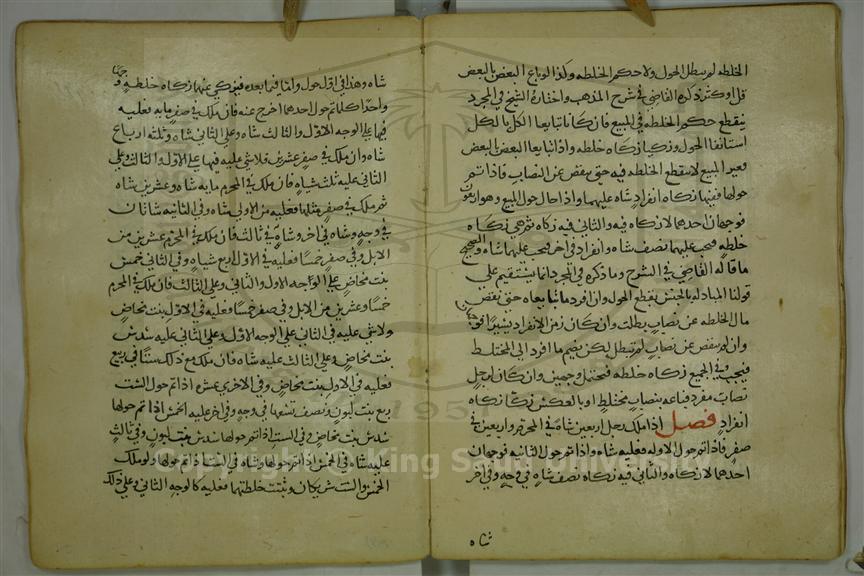 الخلطه لم يبطل الحول ولا حكم الخلطه وكذا لو باع البعض بالبعض
قل او كثر ذكره القاضي في شرح المذهب واختاره الشيخ في المجرد
ينقطع حكم الخلطه في المبيع فان كانا تبايعا الكل بالكل
استانفا الحول وزكيا زكاه خلطه واذا تبايعا البعض بالبعض
فغير المبيع لا تنقطع الخلطه فيه حتى ينقص عن النصاب فاذا تم
حولها ففيها زكاه انفراد شاه عليهما واذا حال حول المبيع وهو اربعون
فوجهان احدهما لا زكاه فيه والثاني فيه زكاه ثم هي زكاه
خلطه فيجب عليهما نصف شاه وانفراد في آخر فيجب عليهما شاه والصحيح
ما قاله القاضي في الشرح وما ذكره في المجرد انما يستقيم على
قولنا المبادله بالجنس يقطع الحول وان افردا ما تبايعاه حتى نقص
مال الخلطه عن نصاب بطلت وان كان زمن الانفراد يسيرا
وان لم ينقص عن نصاب لم تبطل لكن يضم ما افرد الى المختلط
فيجب في الجميع زكاه خلطه فيحتمل وجهين وان كان لرجل
نصاب مفرد فباعه بنصاب مختلط او بالعكس زكيا زكاه
انفراد فصل اذا ملك رجل اربعين شاه في المحرم واربعين في
صفر فاذا تم حول الاوله فعليه شاه واذا تم حول الثانيه فوجهان
احدهما لا زكاه والثاني فيه زكاه نصف شاه في وجه وفي آخر
شاه
شاه وهذا في اول حول واما فيما بعده فيزكي عنهما زكاه خلطه
واحدا كلما تم حول احدهما اخرج عنه فان ملك في صفر مايه فعليه
فيها على الوجه الاول والثالث شاه وعلى الثاني شاه وثلثه ارباع
شاه وان ملك في صفر عشرين فلا شي عليه فيها على الاول والثالث وعلى
الثاني عليه ثلث شاه فان ملك في المحرم مايه شاه وعشرين شاه
ثم ملك في صفر مثلها فعليه من الاولى شاه وفي الثانيه شاتان
في وجه وشاه في اخر وشاه في ثالث فان ملك في المحرم عشرين من
الابل وفي صفر خمسا فعليه في الاول اربع شياه وفي الثاني خمس
بنت مخاض على الوجه الاول والثاني وعلى الثالث فان ملك في المحرم
خمسا وعشرين من الابل وفي صفر خمسا فعليه في الاول بنت مخاض
ولا شي عليه في الثاني على الوجه الاول وعلى الثاني عليه سدس
بنت مخاض وعلى الثالث عليه شاه فان ملك مع ذلك ستا في ربيع
فعليه في الاول بنت مخاض وفي الاخرى عشره اذا تم حول الست
ربع بنت لبون ونصف تسعها في وجه وفي اخر عليه في الخمس اذا تم حولها
سدس بنت مخاض وفي الست اذا تم حولها سدس بنت لبون وفي ثالث
عليه شاه في الخمس اذا تم حولها وشاه في الست اذا تم حولها ولو ملك
الخمس والست شريكان وثبتت خلطتهما فعليه كالوجه الثاني وعلى ذلك
Copyright © King Saud University
1957